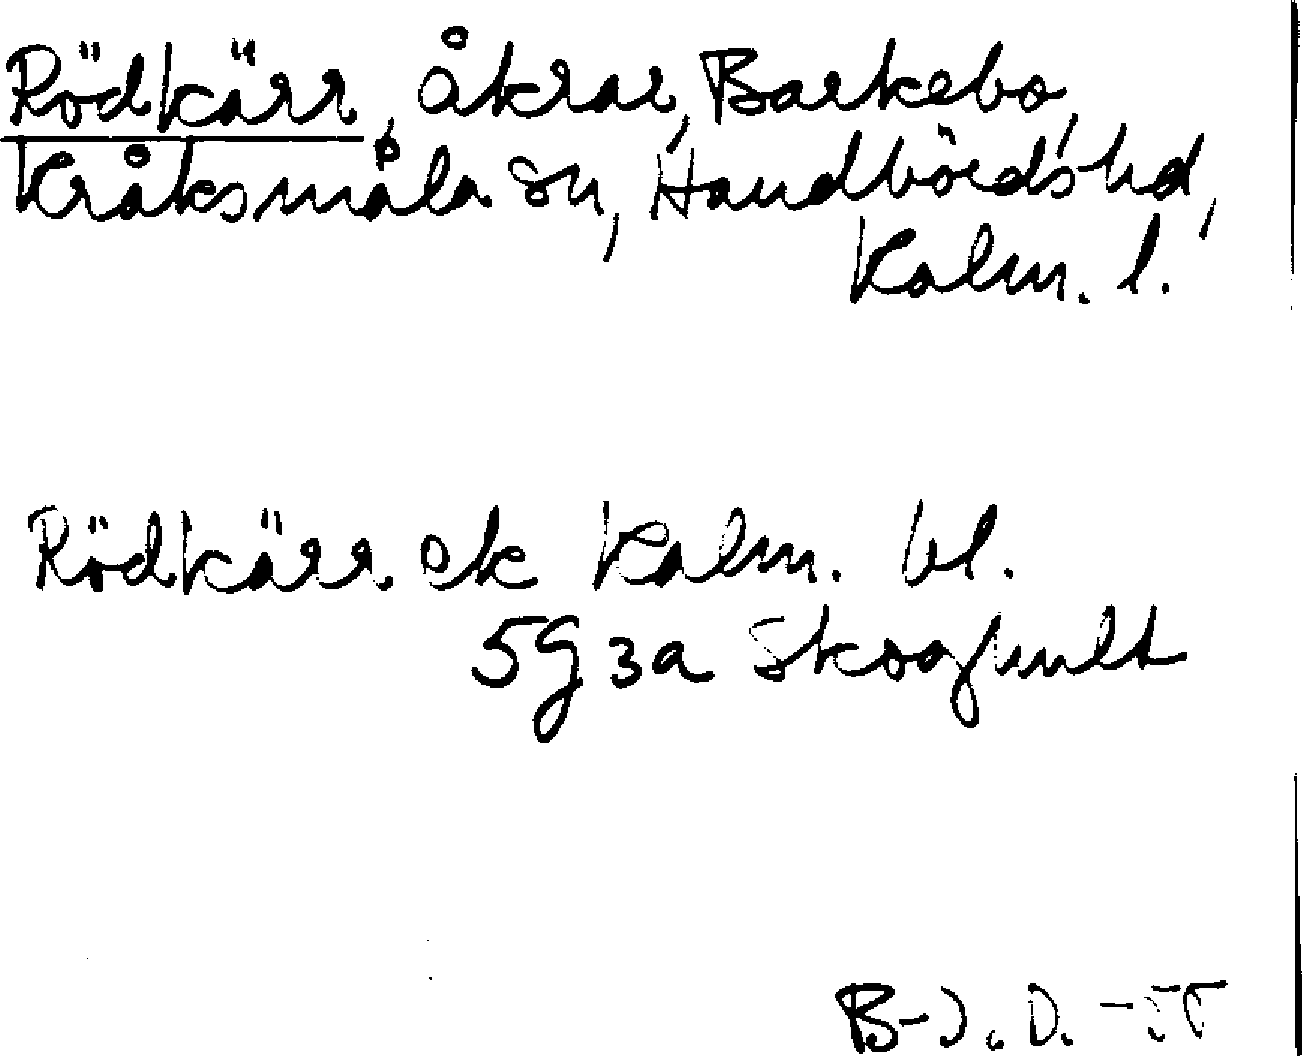 Rödkärr, åkrar, Barkebo,
Kråksmåla sn, Handbörds hd,
Kalm. l.
Rödkärr ek Kalm. bl.
5g 3a Skoghult
B-J. D. -55